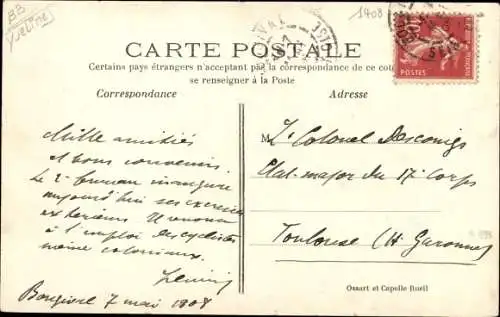 BB
Yveline
1908
CARTE POSTALE
Certains pays étrangers n'acceptant pas la correspondance de ce côté
se renseigner à la Poste
Correspondance
Adresse
POSTES
Mille amitiés
et bons souvenirs.
Le 2e bureau inaugure
aujourd'hui ses exercices
extérieurs
à l'emploi des cyclistes
même coloniaux.
7 mai 1908
M Le Colonel
Etat-major du 17e Corps
Toulouse (Hte Garonne)
Ossart et Capelle Rueil